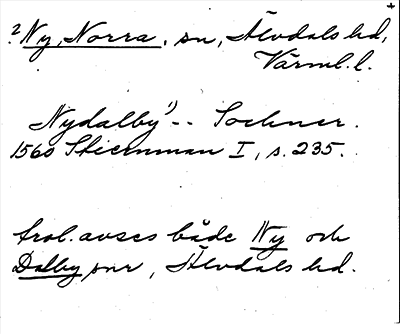 ? Ny, Norra, sn, Älvdals hd,
Värml. l.
Nydalby¹) -- Sochner.
1560 Stiernman I, s. 235.
trol. avses både Ny och
Dalby snr, Älvdals hd.